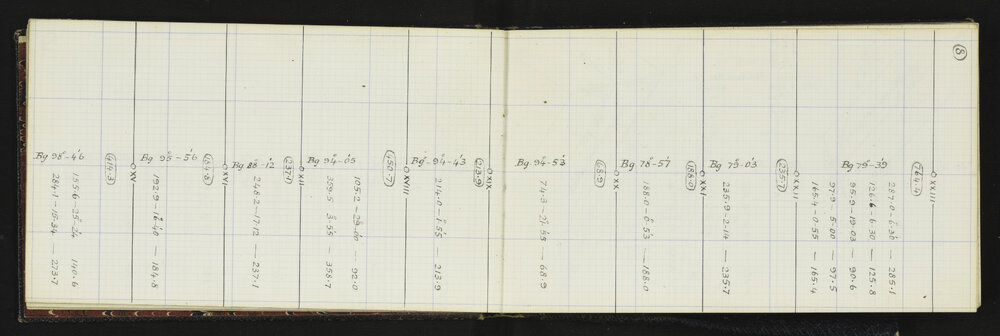 8
Bg 98°-46'
284.1 - 15-34 — 273.7
155.6 - 25-24 140.6
414.3
XV
Bg 95°-56'
192.9 - 16-40 — 184.8
184.8
XVI
Bg 88°-12
248.2 - 17-12 — 237.1
237.1
XVII
Bg 94°-05
359.5 3-55 — 358.7
105.2 - 29-00 — 92.0
450.7
XVIII
Bg 94-43
214.0 - 1-55 — 213.9
213.9
XIX
Bg 94°-53
74.3 - 21-55 — 68.9
68.9
XX
Bg 78°-57
188.0 - 0-53 — 188.0
188.0
XXI
Bg 79°-03
235.9 - 2-14 — 235.7
235.7
XXII
Bg 79°-39
165.4 - 0-55 — 165.4
97.9 - 5-00 — 97.5
95.9 - 19-08 — 90.6
126.6 - 6-30 — 125.8
287.0 - 6-36 — 285.1
764.4
XXIII